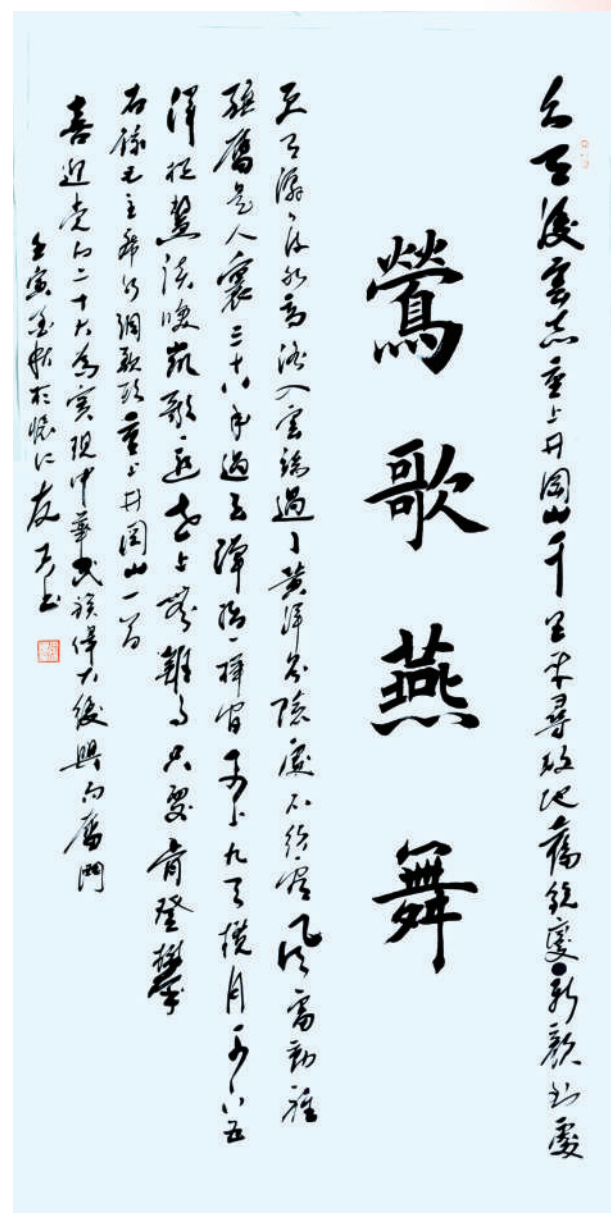 久有凌雲志重上井岡山千里來尋故地舊貌變新顏到處
鶯歌燕舞
更有潺潺流水高路入雲端過了黃洋界險處不須看風雷動旌
旗奮是人寰三十八年過去彈指一揮間可上九天攬月可下五
洋捉鱉談笑凱歌還世上無難事只要肯登攀
右錄毛主席水調歌頭重上井岡山一首
喜迎党的二十大為實現中華民族偉大復興而奮鬥
壬寅金秋於懷仁友